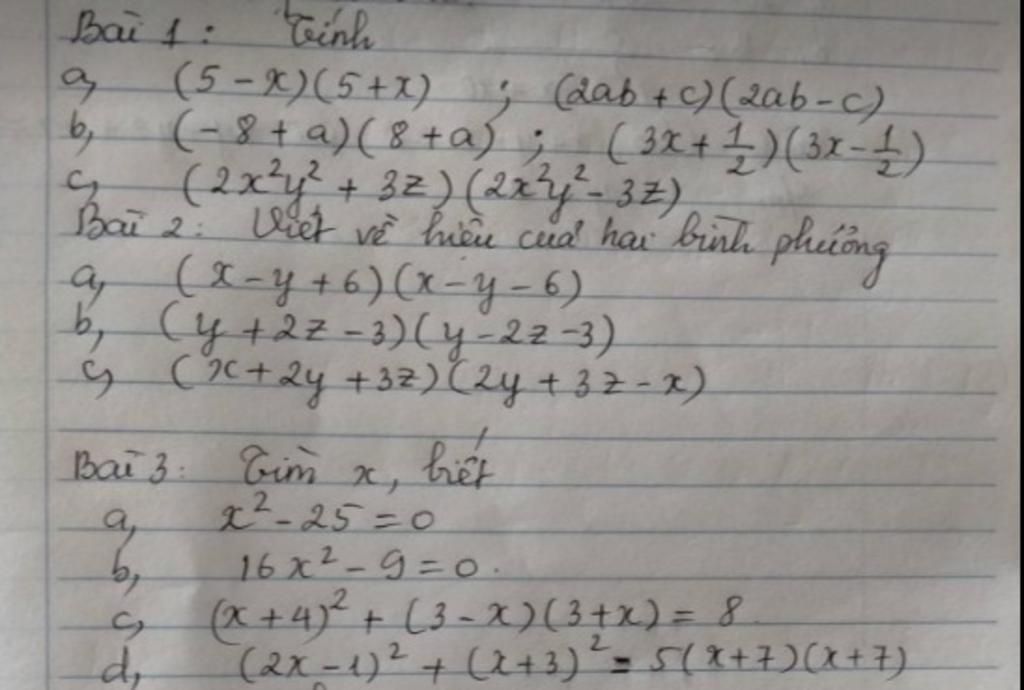 Bài 1: Tính
a, (5-x)(5+x) ; (2ab+c)(2ab-c)
b, (-8+a)(8+a) ; (3x+1/2)(3x-1/2)
c, (2x²y² + 3z)(2x²y² - 3z)
Bài 2: Viết về hiệu của hai bình phương
a, (x-y+6)(x-y-6)
b, (y+2z-3)(y-2z-3)
c, (x+2y+3z)(2y+3z-x)
Bài 3: Tìm x, biết
a, x²-25=0
b, 16x²-9=0.
c, (x+4)² + (3-x)(3+x) = 8
d, (2x-1)² + (x+3)² = 5(x+7)(x+7)